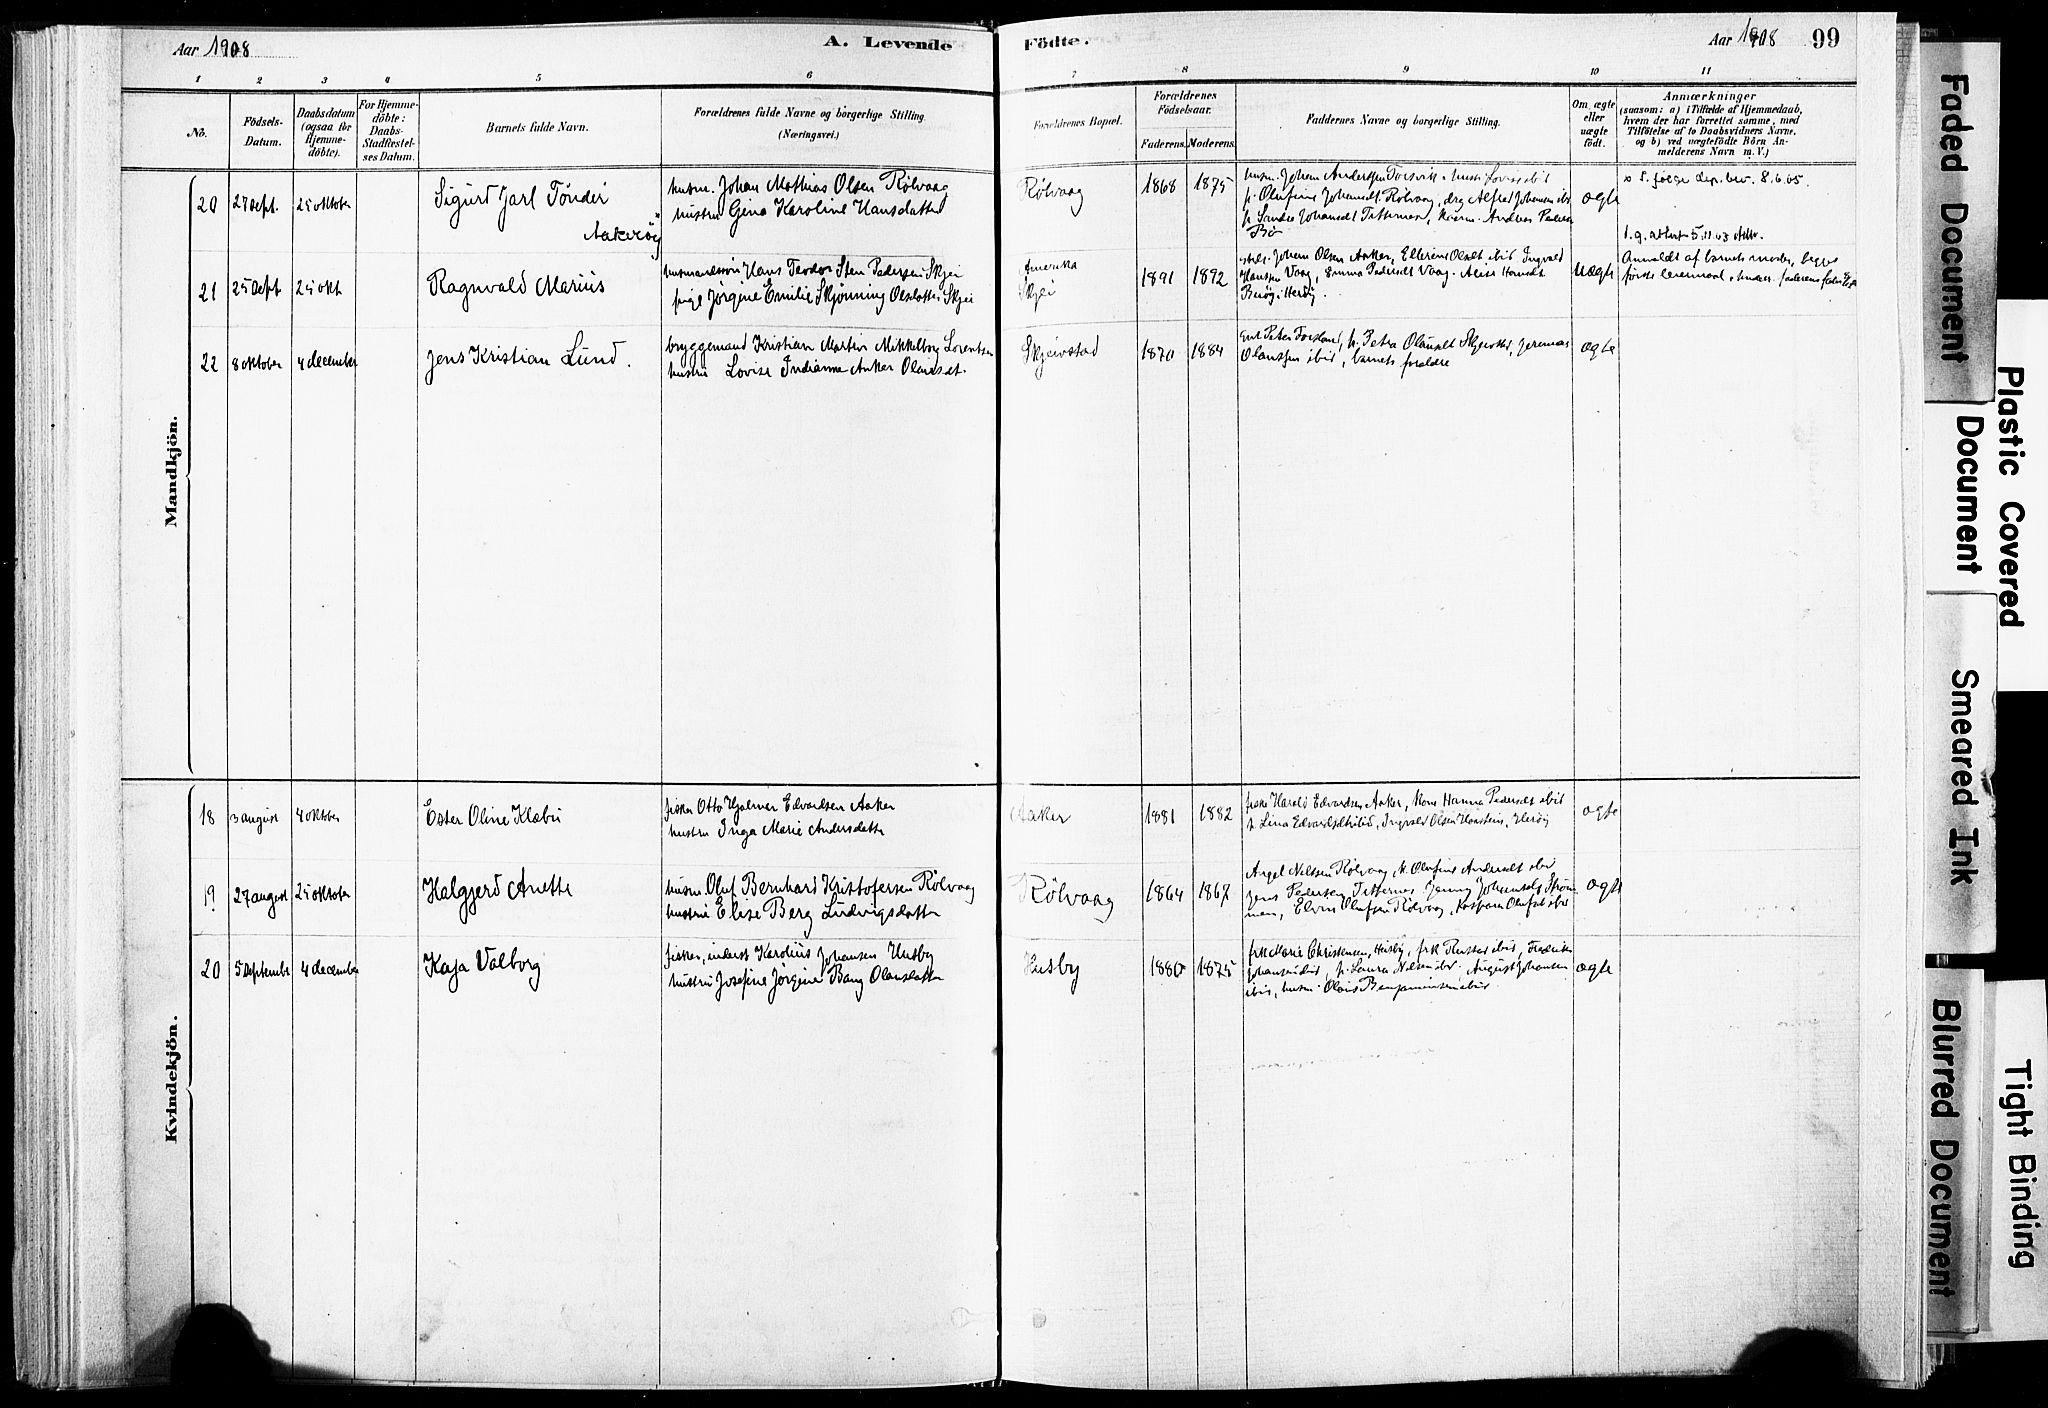 Aar 1908
A. Levende
Födte.
Aar 1908 99
1 2 3 4 5 6 7 8 9 10 11
No.
Födsels-
Datum.
Daabsdatum
(ogsaa for
Hjemme-
döbte).
For Hjemme-
döbte:
Daabs-
Stadfæstel-
ses Datum.
Barnets fulde Navn.
Forældrenes fulde Navne og borgerlige Stilling.
(Næringsvei.)
Forældrenes Bopæl.
Forældrenes
Födselsaar.
Faderens. Moderens.
Faddernes Navne og borgerlige Stilling.
Om ægte
eller
uægte
födt.
Anmærkninger
(saasom: a) i Tilfælde af Hjemmedaab,
hvem der har forrettet samme, med
Tilföielse af to Daabsvidners Navne,
og b) ved uægtefödte Börn An-
melderens Navn m. V.)
Mandkjön.
20 27 sept. 25 oktober
Sigurd Jarl Tönder
Aakerøy
husm. Johan Mathias Olsen Rølvaag
hustru Gina Karoline Hansdatter
Rølvaag 1868 1875
husm. Johan Anderssen
p. Olufine Johansdt. Rølvaag, drg Alfred Johansen ibid
p. Sandra Johansdt Titternes, Andreas Pedersen
Bø
ægte
x S. følge dep. brev. 8.6.05.
21 25 Sept 25 okt
Ragnvald Marius
husmandssøn Hans Teodor Sten Pedersen Skjei
pige Jørgine Emilie Skjønning Olsdatter Skjei
Amerika
Skjei
1891 1892
Johan Olsen Aaker, Ellerine Olsdt ibid, Ingvald
Hansen Vaag, Emma Pedersdt Vaag,
Herøy.
Uægte
Anmeldt af barnets moder, begges
første leiermaal,
22 8 oktober 4 december
Jens Kristian Lund.
bryggemand Kristian Martin Mikkelborg Lorentsen
hustru Lovise Indianne Aaker Olausdt.
Skjeivstad 1870 1884
Peter Forsland, p. Petra Olausdt Skjeivstad, Jeremias
Olaussen ibid, barnets forældre
ægte
Kvindekjön.
18 3 august 4 oktober
Ester Oline Klæbu
fisker Otto Hjalmar Edvardsen Aaker
hustru Inga Marie Andersdatter
Aaker 1881 1882
fisker Harald Edvardsen Aaker, Kone Hanna Pedersdt ibid
p. Lina Edvardsdt ibid, Ingvald Olsen Herøy
ægte
19 27 august 25 oktober
Halgjerd Anette
husm. Oluf Bernhard Kristofersen Rølvaag
hustru Elise Berg Ludvigsdatter
Rølvaag 1864 1867
Angel Nilssen Rølvaag, k. Olufine Andersdt ibid
Jens Pedersen Titternes, Jenny Johansdt Strøm-
men, Elvin Olufsen Rølvaag, Kaspara Olufsdt ibid
ægte
20 5 September 4 december
Kaja Valborg
fisker, inderst Karolius Johansen Husby
hustru Josefine Jørgine Bang Olausdatter
Husby 1880 1875
frk Marie Christensen, Husby, frk ibid, Fredrik
Johansen ibid, p. Laura Nilsen ibid, August Johansen
ibid, husm. Olois Benjaminsen ibid
ægte
Faded Document
Plastic Covered
Document
Smeared Ink
Blurred Document
Tight Binding